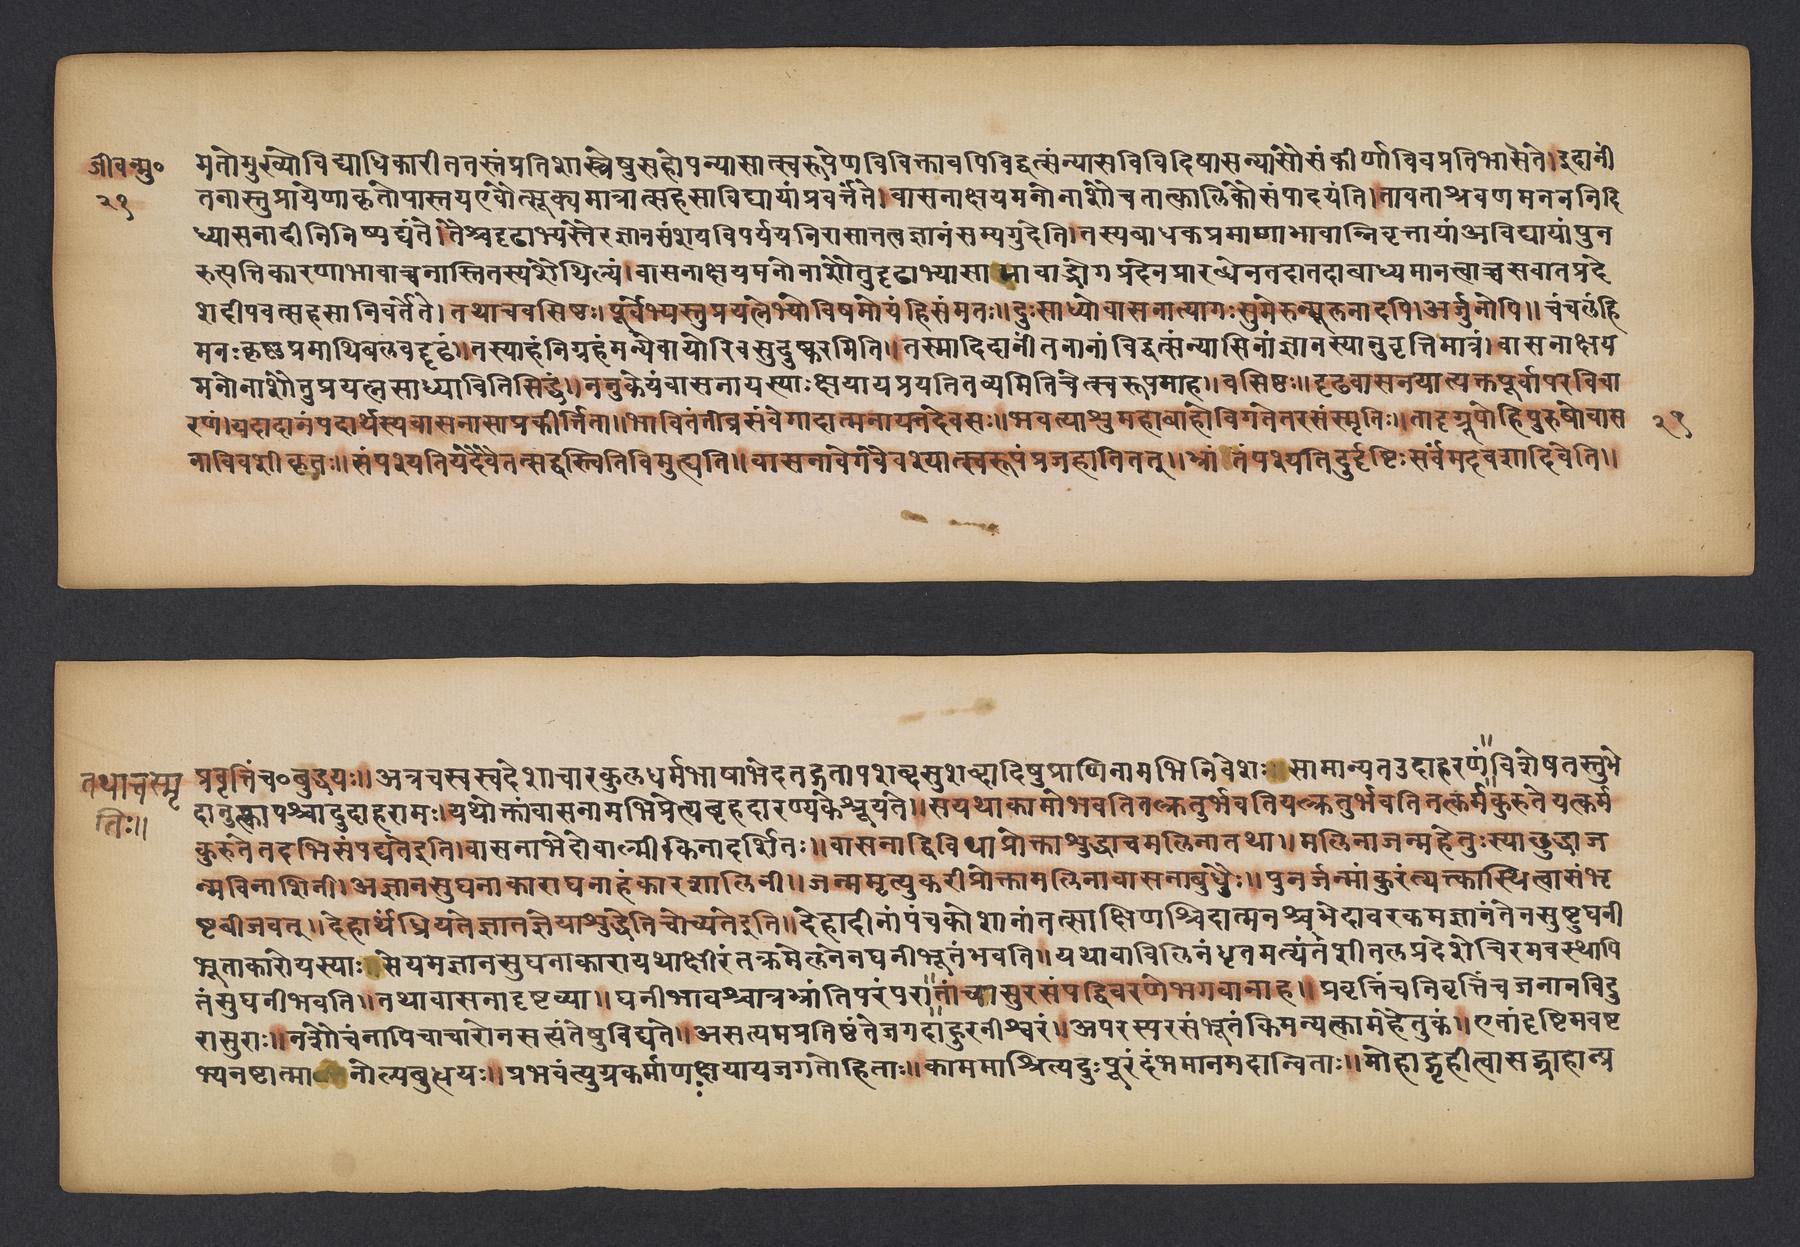 जीवन्मु०
२१
मतोमुख्योविद्याधिकारीततस्तंप्रतिशास्त्रेषुसहोपन्यासात्स्वरूपेणविविक्तावपिविद्वत्संन्यासविविदिषासन्यासौसंकीर्णाविवप्रतिभासेते।इदानीं
तनास्तुप्रायेणाकृतोपास्तयएवौत्सूक्यमात्रात्सहसाविद्यायांप्रवर्त्तंते।वासनाक्षयमनोनाशौचतात्कालिकौसंपादयंति।तावताश्रवणमनननिदि
ध्यासनादीनिनिष्पद्यंते।तैश्चदृढाभ्यस्तैरज्ञानसंशयविपर्ययनिरासात्तत्वज्ञानंसम्यगुदेति।तस्यबाधकप्रमाणाभावान्निवृत्तायांअविद्यायांपुन
रुत्पत्तिकारणाभावाच्चनास्तितस्यशैथिल्यं।वासनाक्षयमनोनाशौतुदृढाभ्यासाभावाद्भोगप्रदेनप्रारब्धेनतदातदाबाध्यमानत्वाच्चसवातप्रदे
शदीपवत्सहसानिवर्तेते।तथाचवसिष्ठः।पूर्वेभ्यस्तुप्रयत्नेभ्योविषमोयंहिसंमतः॥दुःसाध्योवासनात्यागःसुमेरुन्मूलनादपि।अर्जुनोपि॥चंचलंहि
मनःकृष्णप्रमाथिबलवदृढं॥तस्याहंनिग्रहंमन्येवायोरिवसुदुष्करमिति॥तस्मादिदानींतनानांविद्वत्संन्यासिनांज्ञानस्यानुवृत्तिमात्रं।वासनाक्षय
मनोनाशौतुप्रयत्नसाध्यावितिसिद्धं॥ननुकेयंवासनायस्याःक्षयायप्रयतितव्यमितिचेत्स्वरूपमाह॥वसिष्ठः॥दृढवासनयात्यक्तपूर्वापरविचा
रणं।यदादानंपदार्थस्यवासनासाप्रकीर्त्तिता॥भावितंतीव्रसंवेगादात्मनायत्तदेवसः॥भवत्याशुमहाबाहोविगतेतरसंस्मृतिः॥तादृग्रूपोहिपुरुषोवास
२१
नाविवशीकृतः॥संपश्यतियदेवैतत्सद्वस्त्वितिविमुह्यति॥वासनावेगवैवश्यात्स्वरूपंप्रजहातितत्॥भ्रांतंपश्यतिदुर्दृष्टिःसर्वंमदवशादिवेति॥
तथाचस्मृ
तिः॥
प्रवृत्तिंच०बुद्धयः॥अत्रचस्वस्वदेशाचारकुलधर्मभाषाभेदतद्गतापशब्दसुशब्दादिषुप्राणिनामभिनिवेशःसामान्यतउदाहरणं॥विशेषतस्तुभे
दानुत्क्त्वापश्चादुदाहरामः।यथोक्तांवासनामभिप्रेत्यबृहदारण्यकेश्रूयते॥सयथाकामोभवतितत्क्रतुर्भवतियत्क्रतुर्भवतितत्कर्मकुरुतेयत्कर्म
कुरुतेतदभिसंपद्यतेइति।वासनाभेदोवाल्मीकिनादर्शितः॥वासनाद्विविधाप्रोक्ताशुद्धाचमलिनातथा॥मलिनाजन्महेतुःस्याछुद्धाज
न्मविनाशिनी।अज्ञानसुघनाकाराघनाहंकारशालिनी॥जन्ममृत्युकरीप्रोक्तामलिनावासनाबुधैः॥पुनर्जन्मांकुरंत्यत्काःस्थित्वासंभृ
ष्टबीजवत्॥देहार्थंध्रियतेज्ञातज्ञेयाशुद्धेतिचोच्यतेइति॥देहादीनांपंचकोशानांतत्साक्षिणश्चिदात्मनश्चभेदावरकमज्ञानंतेनसुष्टुघनी
भूताकारोयस्याःसेयमज्ञानसुघनाकारायथाक्षीरंतक्रमेलनेनघनीभूतंभवति॥यथावाविलिनंघृतमत्यंतंशीतलप्रदेशेचिरमवस्थापि
तंसुघनीभवति॥तथावासनादृष्टव्या॥घनीभावश्चात्रभ्रांतिपरंपरा॥तांचासुरसंपद्विवरणेभगवानाह॥प्रवृत्तिंचनिवृत्तिंचजनानविदु
रासुराः॥नशौचंनापिचाचारोनसत्यंतेषुविद्यते॥असत्यमप्रतिष्ठंतेजगदाहुरनीश्वरं॥अपरस्परसंभूतंकिमन्यत्कामहैतुकं॥एतांदृष्टिमवष्ट
भ्यनष्टात्मानोल्पबुद्धयः॥प्रभवंत्युग्रकर्माणःक्षयायजगतोहिताः॥काममाश्रित्यदुःपूरंदंभमानमदान्विताः॥मोहाद्गृहीत्वासद्ग्राहान्प्र